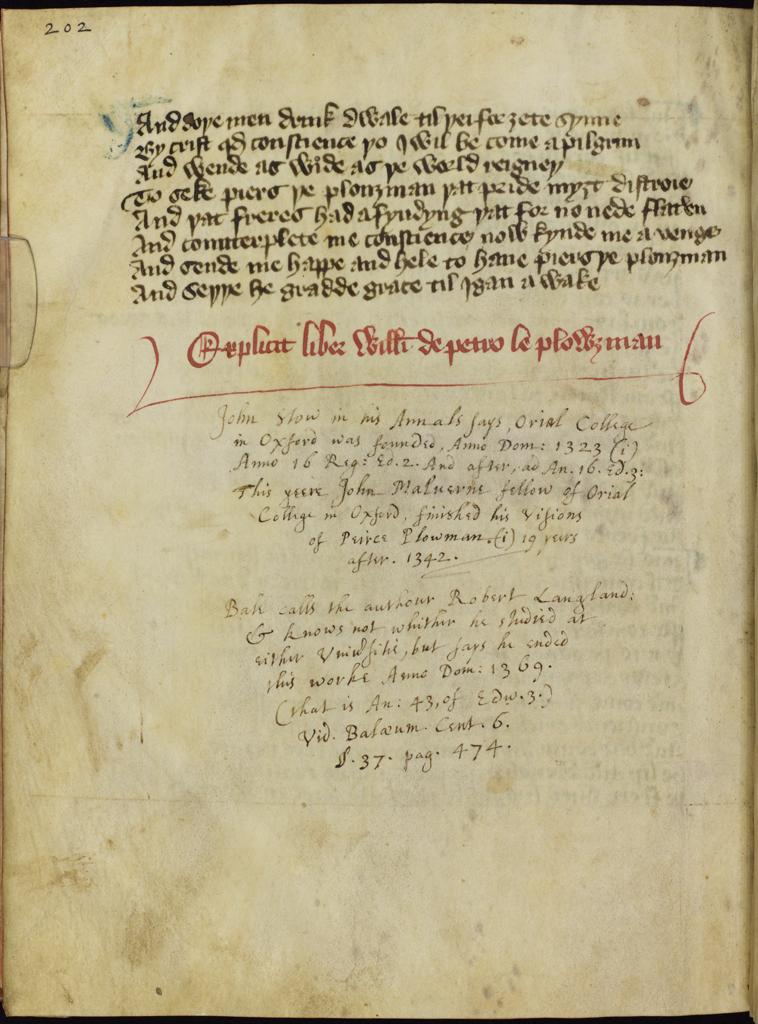 202
And doþe men drink dwale til þei forȝete synne
By crist qd conscience þo I wil be come a pilgrim
And wende as wide as þe werld reigneþ
To seke piers þe plouȝman þat pride myȝt distroie
And þat freres had a fyndyng þat for no nede flatten
And counterplete me conscience now kynde me avenge
And sende me happe and hele to haue piers þe plouȝman
And seþþe he gradde grace til I gan a wake
Explicit liber Willi de petro le plowȝman
John Stow in his Annals says, Orial College
in Oxford was founded, Anno Dom: 1323 (i)
Anno 16 Reg: Ed. 2. And after, ad An. 16. Ed. 3:
This yeere John Maluerne fellow of Orial
College in Oxford, finished his Visions
of Peirce Plowman. (i) 19 yeers
after. 1342.
Bale calls the authour Robert Langland:
& knows not whither he studied at
either Uniuersitie, but says he ended
this worke Anno Dom: 1369.
(that is An: 43, of Edw. 3.)
Vid. Balæum. Cent. 6.
§. 37. pag. 474.